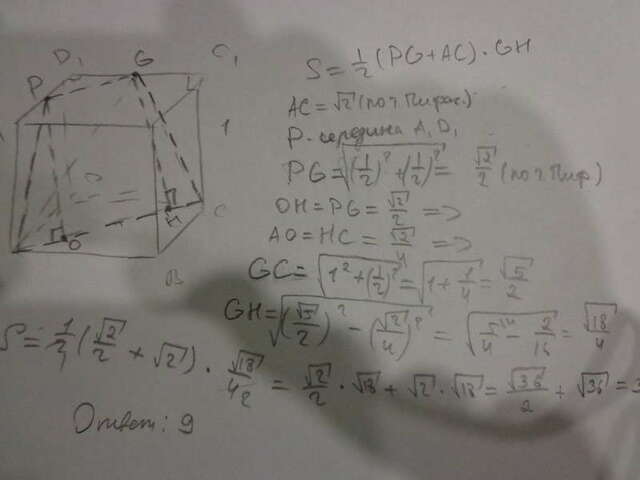 D₁ G C₁
P
S = 1/2 (PG + AC) · GH
AC = √2 (по т. Пифаг.)
P - середина A₁D₁
PG = √((1/2)² + (1/2)²) = √2/2 (по т. Пиф)
OH = PG = √2/2 =>
AO = HC = √2/4 =>
GC = √(1² + (1/2)²) = √(1 + 1/4) = √5/2
GH = √((√5/2)² − (√2/4)²) = √(5/4 − 2/16) = √18/4
S = 1/2 (√2/2 + √2) · √18/4 = √2/2 · √18 + √2 · √18 = √36/2 + √36 = 3
O H C
B
Ответ: 9